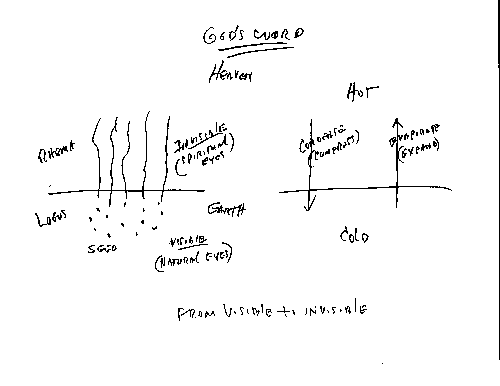 GOD'S WORD
HEAVEN
HOT
RHEMA
INVISIBLE
(SPIRITUAL
EYES)
CONDENSE
(COMPRESS)
EVAPORATE
(EXPAND)
LOGOS
EARTH
SEED
VISIBLE
(NATURAL EYES)
COLD
FROM VISIBLE to INVISIBLE